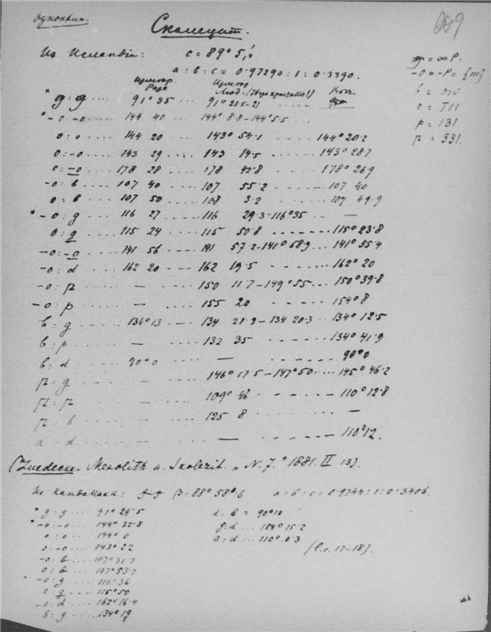 Одноклин.
Сколецит.
Из Исландіи: c = 89° 5,'
a : b : c = 0.97290 : 1 : 0.3390.
g : g .... 91° 35 ... 91°
* -o : -o .... 144 40 ... 144° 8.8 - 144° 5.5
o : o .... 144 20 143° 54.1 144° 20.2
o : -o ... 143 29 ... 143 14.5 143° 28.7
o : -o ... 178 28 ... 178 42.8 178° 26.9
-o : b ... 107 40 ... 107 55.2 107 40
o : b ... 107 50 ... 108 3.2 107 49.9
* -o : g ... 116 27 ... 116 29.3 - 116° 35 —
o : g ... 115 24 ... 115 50.8 115° 23.8
-o : -o ... 141 56 ... 141 57.2 - 141° 58.9 141° 55.4
-o : d ... 162 20 ... 162 19.5 162° 20
-o : p — 150 11.7 - 149° 55 ... 150° 39.8
-o : p — 155 20 154° 8
b : g ... 134° 13 ... 134 21.9 - 134 20.3 134° 12.5
b : p ... — 132 35 134° 41.9
b : d ... 90° 0 — 90° 0
p : g — 146° 17.5 - 147° 50 ... 145° 46.2
p : p — 109° 46 110° 12.8
p : b — 125 8 —
a : d — — 110° 12.
-o = -P = {111}
b = 010
o = T11
p = 131
p = 331.
(Luedecke. Mesolith u. Skolezit. N. J. 1881. II 13).
β = 88° 58' 6 a : b : c = 0.9744 : 1 : 0.3406.
* g : g .... 91° 24.5 d : b = 90° 10
* -o : -o .... 144° 32.8 g : d ... 104° 15.2
o : o .... 144° 0 a : d ... 110° 0.3
o : -o .... 143° 22
-o : b .... 107° 31.7
o : b .... 107° 53.7
* -o : g .... 116° 36
o : g .... 115° 50
-o : d .... 162° 16.4
b : g .... 134° 19
(l. c. 17-18).